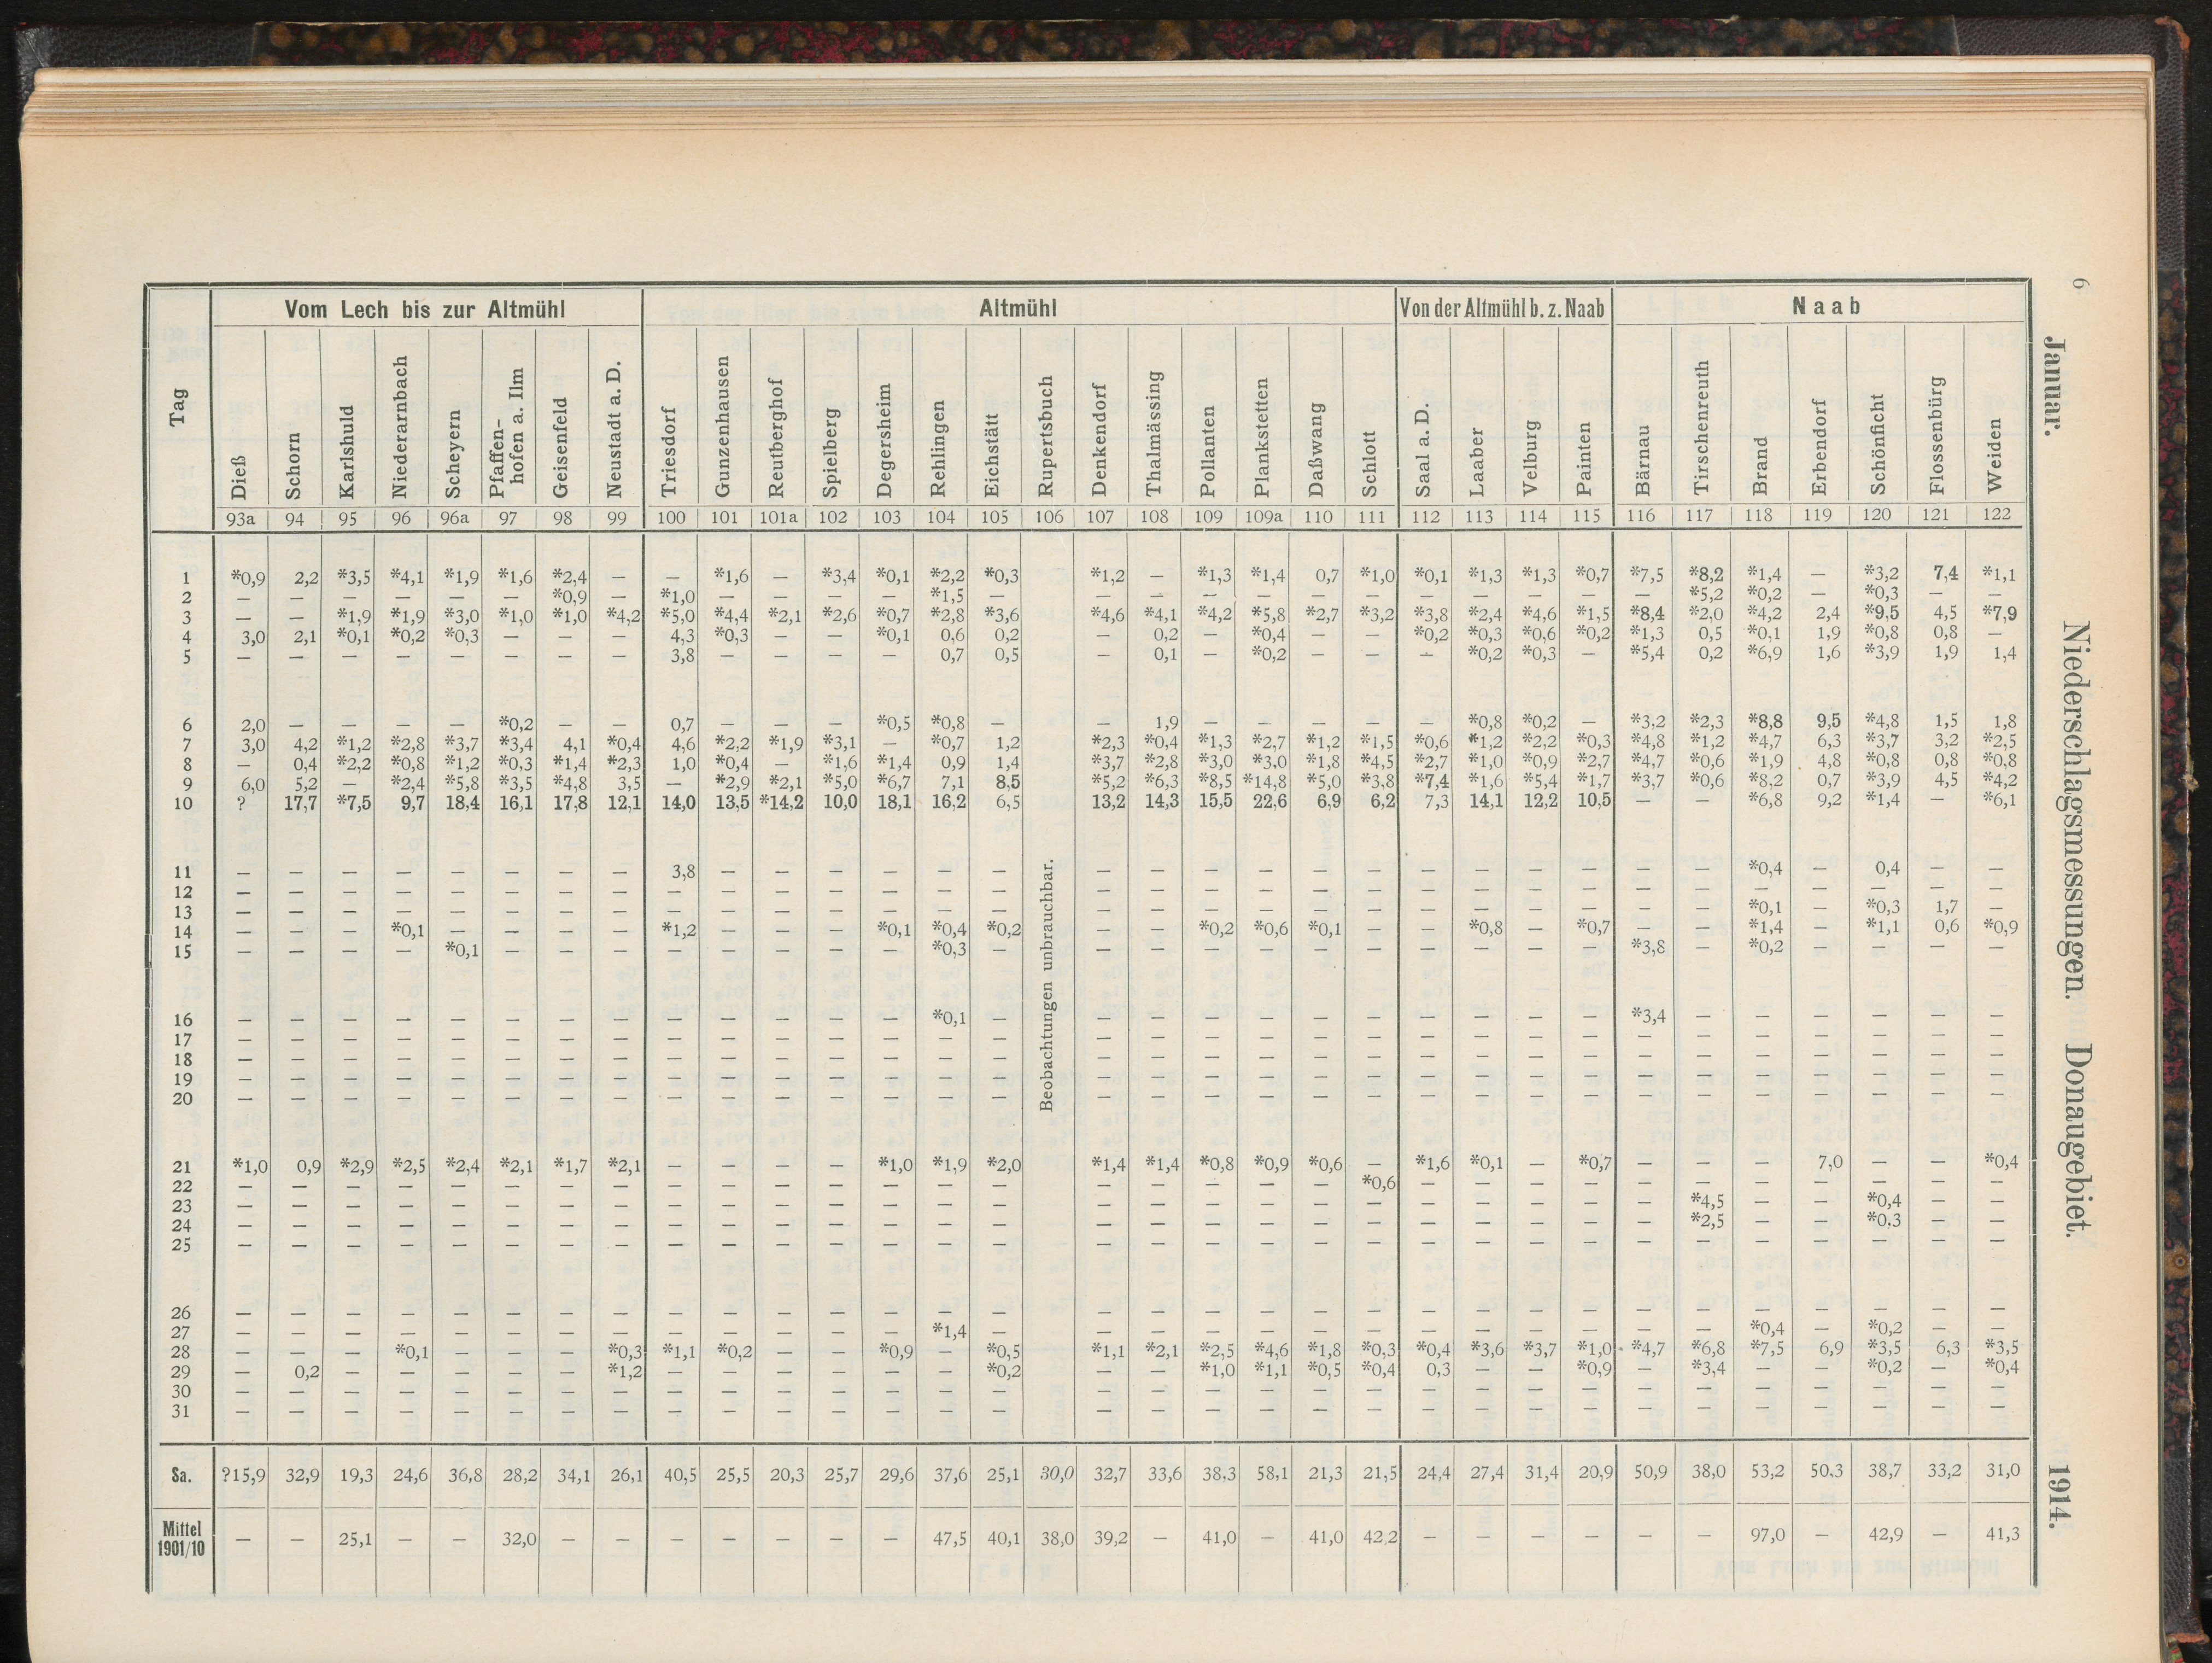 6
Januar. Niederschlagsmessungen. Donaugebiet. 1914.
Tag | Vom Lech bis zur Altmühl | Altmühl | Von der Altmühl b. z. Naab | Naab
Dieß | Schorn | Karlshuld | Niederarnbach | Scheyern | Pfaffen-hofen a. Ilm | Geisenfeld | Neustadt a. D. | Triesdorf | Gunzenhausen | Reutberghof | Spielberg | Degersheim | Rehlingen | Eichstätt | Rupertsbuch | Denkendorf | Thalmässing | Pollanten | Plankstetten | Daßwang | Schlott | Saal a. D. | Laaber | Velburg | Painten | Bärnau | Tirschenreuth | Brand | Erbendorf | Schönficht | Flossenbürg | Weiden
93a | 94 | 95 | 96 | 96a | 97 | 98 | 99 | 100 | 101 | 101a | 102 | 103 | 104 | 105 | 106 | 107 | 108 | 109 | 109a | 110 | 111 | 112 | 113 | 114 | 115 | 116 | 117 | 118 | 119 | 120 | 121 | 122
1 | *0,9 | 2,2 | *3,5 | *4,1 | *1,9 | *1,6 | *2,4 | — | — | *1,6 | — | *3,4 | *0,1 | *2,2 | *0,3 | | *1,2 | — | *1,3 | *1,4 | 0,7 | *1,0 | *0,1 | *1,3 | *1,3 | *0,7 | *7,5 | *8,2 | *1,4 | — | *3,2 | 7,4 | *1,1
2 | — | — | — | — | — | — | *0,9 | — | *1,0 | — | — | — | — | *1,5 | — | | — | — | — | — | — | — | — | — | — | — | — | *5,2 | *0,2 | — | *0,3 | — | —
3 | — | — | *1,9 | *1,9 | *3,0 | *1,0 | *1,0 | *4,2 | *5,0 | *4,4 | *2,1 | *2,6 | *0,7 | *2,8 | *3,6 | | *4,6 | *4,1 | *4,2 | *5,8 | *2,7 | *3,2 | *3,8 | *2,4 | *4,6 | *1,5 | *8,4 | *2,0 | *4,2 | 2,4 | *9,5 | 4,5 | *7,9
4 | 3,0 | 2,1 | *0,1 | *0,2 | *0,3 | — | — | — | 4,3 | *0,3 | — | — | *0,1 | 0,6 | 0,2 | | — | 0,2 | — | *0,4 | — | — | *0,2 | *0,3 | *0,6 | *0,2 | *1,3 | 0,5 | *0,1 | 1,9 | *0,8 | 0,8 | —
5 | — | — | — | — | — | — | — | — | 3,8 | — | — | — | — | 0,7 | 0,5 | | — | 0,1 | — | *0,2 | — | — | — | *0,2 | *0,3 | — | *5,4 | 0,2 | *6,9 | 1,6 | *3,9 | 1,9 | 1,4
6 | 2,0 | — | — | — | — | *0,2 | — | — | 0,7 | — | — | — | *0,5 | *0,8 | — | | — | 1,9 | — | — | — | — | — | *0,8 | *0,2 | — | *3,2 | *2,3 | *8,8 | 9,5 | *4,8 | 1,5 | 1,8
7 | 3,0 | 4,2 | *1,2 | *2,8 | *3,7 | *3,4 | 4,1 | *0,4 | 4,6 | *2,2 | *1,9 | *3,1 | — | *0,7 | 1,2 | | *2,3 | *0,4 | *1,3 | *2,7 | *1,2 | *1,5 | *0,6 | *1,2 | *2,2 | *0,3 | *4,8 | *1,2 | *4,7 | 6,3 | *3,7 | 3,2 | *2,5
8 | — | 0,4 | *2,2 | *0,8 | *1,2 | *0,3 | *1,4 | *2,3 | 1,0 | *0,4 | — | *1,6 | *1,4 | 0,9 | 1,4 | | *3,7 | *2,8 | *3,0 | *3,0 | *1,8 | *4,5 | *2,7 | *1,0 | *0,9 | *2,7 | *4,7 | *0,6 | *1,9 | 4,8 | *0,8 | 0,8 | *0,8
9 | 6,0 | 5,2 | — | *2,4 | *5,8 | *3,5 | *4,8 | 3,5 | — | *2,9 | *2,1 | *5,0 | *6,7 | 7,1 | 8,5 | | *5,2 | *6,3 | *8,5 | *14,8 | *5,0 | *3,8 | *7,4 | *1,6 | *5,4 | *1,7 | *3,7 | *0,6 | *8,2 | 0,7 | *3,9 | 4,5 | *4,2
10 | ? | 17,7 | *7,5 | 9,7 | 18,4 | 16,1 | 17,8 | 12,1 | 14,0 | 13,5 | *14,2 | 10,0 | 18,1 | 16,2 | 6,5 | | 13,2 | 14,3 | 15,5 | 22,6 | 6,9 | 6,2 | 7,3 | 14,1 | 12,2 | 10,5 | — | — | *6,8 | 9,2 | *1,4 | — | *6,1
Beobachtungen unbrauchbar.
11 | — | — | — | — | — | — | — | — | 3,8 | — | — | — | — | — | — | | — | — | — | — | — | — | — | — | — | — | — | — | *0,4 | — | 0,4 | — | —
12 | — | — | — | — | — | — | — | — | — | — | — | — | — | — | — | | — | — | — | — | — | — | — | — | — | — | — | — | — | — | — | — | —
13 | — | — | — | — | — | — | — | — | — | — | — | — | — | — | — | | — | — | — | — | — | — | — | — | — | — | — | — | *0,1 | — | *0,3 | 1,7 | —
14 | — | — | — | *0,1 | — | — | — | — | *1,2 | — | — | — | *0,1 | *0,4 | *0,2 | | — | — | *0,2 | *0,6 | *0,1 | — | — | *0,8 | — | *0,7 | — | — | *1,4 | — | *1,1 | 0,6 | *0,9
15 | — | — | — | — | *0,1 | — | — | — | — | — | — | — | — | *0,3 | — | | — | — | — | — | — | — | — | — | — | — | *3,8 | — | *0,2 | — | — | — | —
16 | — | — | — | — | — | — | — | — | — | — | — | — | — | *0,1 | — | | — | — | — | — | — | — | — | — | — | — | *3,4 | — | — | — | — | — | —
17 | — | — | — | — | — | — | — | — | — | — | — | — | — | — | — | | — | — | — | — | — | — | — | — | — | — | — | — | — | — | — | — | —
18 | — | — | — | — | — | — | — | — | — | — | — | — | — | — | — | | — | — | — | — | — | — | — | — | — | — | — | — | — | — | — | — | —
19 | — | — | — | — | — | — | — | — | — | — | — | — | — | — | — | | — | — | — | — | — | — | — | — | — | — | — | — | — | — | — | — | —
20 | — | — | — | — | — | — | — | — | — | — | — | — | — | — | — | | — | — | — | — | — | — | — | — | — | — | — | — | — | — | — | — | —
21 | *1,0 | 0,9 | *2,9 | *2,5 | *2,4 | *2,1 | *1,7 | *2,1 | — | — | — | — | *1,0 | *1,9 | *2,0 | | *1,4 | *1,4 | *0,8 | *0,9 | *0,6 | — | *1,6 | *0,1 | — | *0,7 | — | — | — | 7,0 | — | — | *0,4
22 | — | — | — | — | — | — | — | — | — | — | — | — | — | — | — | | — | — | — | — | — | *0,6 | — | — | — | — | — | — | — | — | — | — | —
23 | — | — | — | — | — | — | — | — | — | — | — | — | — | — | — | | — | — | — | — | — | — | — | — | — | — | — | *4,5 | — | — | *0,4 | — | —
24 | — | — | — | — | — | — | — | — | — | — | — | — | — | — | — | | — | — | — | — | — | — | — | — | — | — | — | *2,5 | — | — | *0,3 | — | —
25 | — | — | — | — | — | — | — | — | — | — | — | — | — | — | — | | — | — | — | — | — | — | — | — | — | — | — | — | — | — | — | — | —
26 | — | — | — | — | — | — | — | — | — | — | — | — | — | — | — | | — | — | — | — | — | — | — | — | — | — | — | — | — | — | — | — | —
27 | — | — | — | — | — | — | — | — | — | — | — | — | — | *1,4 | — | | — | — | — | — | — | — | — | — | — | — | — | — | *0,4 | — | *0,2 | — | —
28 | — | — | — | *0,1 | — | — | — | *0,3 | *1,1 | *0,2 | — | — | *0,9 | — | *0,5 | | *1,1 | *2,1 | *2,5 | *4,6 | *1,8 | *0,3 | *0,4 | *3,6 | *3,7 | *1,0 | *4,7 | *6,8 | *7,5 | 6,9 | *3,5 | 6,3 | *3,5
29 | — | 0,2 | — | — | — | — | — | *1,2 | — | — | — | — | — | — | *0,2 | | — | — | *1,0 | *1,1 | *0,5 | *0,4 | 0,3 | — | — | *0,9 | — | *3,4 | — | — | *0,2 | — | *0,4
30 | — | — | — | — | — | — | — | — | — | — | — | — | — | — | — | | — | — | — | — | — | — | — | — | — | — | — | — | — | — | — | — | —
31 | — | — | — | — | — | — | — | — | — | — | — | — | — | — | — | | — | — | — | — | — | — | — | — | — | — | — | — | — | — | — | — | —
Sa. | ?15,9 | 32,9 | 19,3 | 24,6 | 36,8 | 28,2 | 34,1 | 26,1 | 40,5 | 25,5 | 20,3 | 25,7 | 29,6 | 37,6 | 25,1 | 30,0 | 32,7 | 33,6 | 38,3 | 58,1 | 21,3 | 21,5 | 24,4 | 27,4 | 31,4 | 20,9 | 50,9 | 38,0 | 53,2 | 50,3 | 38,7 | 33,2 | 31,0
Mittel 1901/10 | — | — | 25,1 | — | — | 32,0 | — | — | — | — | — | — | — | 47,5 | 40,1 | 38,0 | 39,2 | — | 41,0 | — | 41,0 | 42,2 | — | — | — | — | — | — | 97,0 | — | 42,9 | — | 41,3